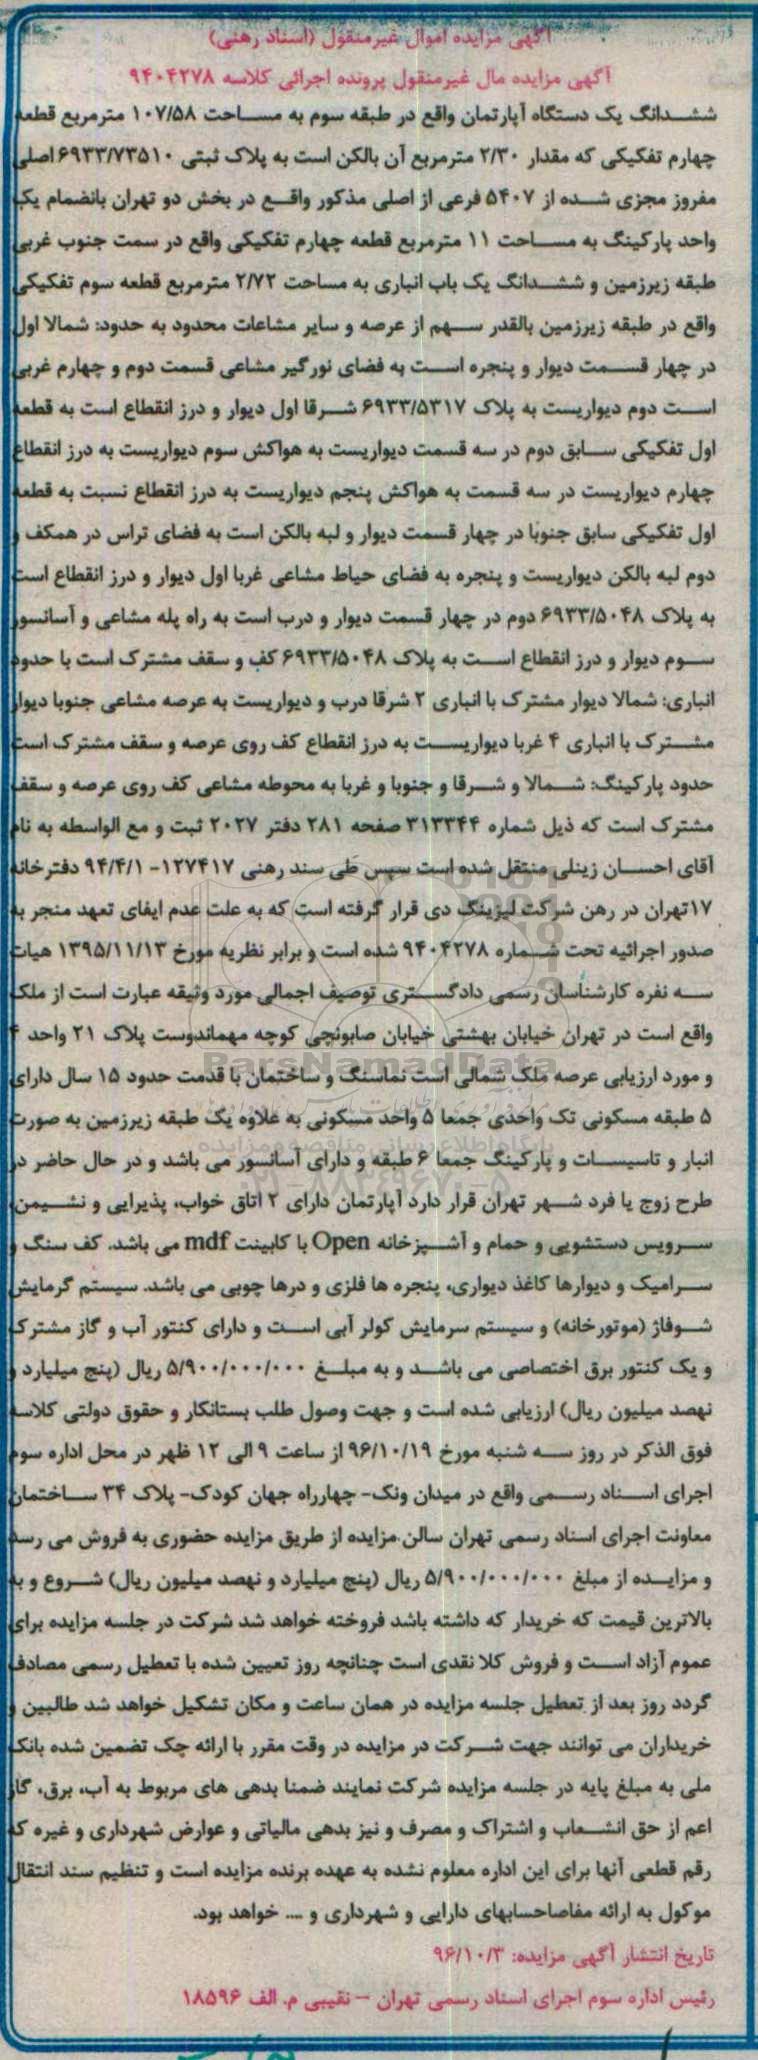 آگهی مزایده اموال غیرمنقول (اسناد رهنی)
آگهی مزایده مال غیرمنقول پرونده اجرائی کلاسه ۹۴۰۴۲۷۸
ششدانگ یک دستگاه آپارتمان واقع در طبقه سوم به مساحت ۱۰۷/۵۸ مترمربع قطعه
چهارم تفکیکی که مقدار ۲/۳۰ مترمربع آن بالکن است به پلاک ثبتی ۶۹۳۳/۷۳۵۱۰ اصلی
مفروز مجزی شده از ۵۴۰۷ فرعی از اصلی مذکور واقع در بخش دو تهران بانضمام یک
واحد پارکینگ به مساحت ۱۱ مترمربع قطعه چهارم تفکیکی واقع در سمت جنوب غربی
طبقه زیرزمین و ششدانگ یک باب انباری به مساحت ۲/۷۲ مترمربع قطعه سوم تفکیکی
واقع در طبقه زیرزمین بالقدر سهم از عرصه و سایر مشاعات محدود به حدود: شمالا اول
در چهار قسمت دیوار و پنجره است به فضای نورگیر مشاعی قسمت دوم و چهارم غربی
است دوم دیواریست به پلاک ۶۹۳۳/۵۳۱۷ شرقا اول دیوار و درز انقطاع است به قطعه
اول تفکیکی سابق دوم در سه قسمت دیواریست به هواکش سوم دیواریست به درز انقطاع
چهارم دیواریست در سه قسمت به هواکش پنجم دیواریست به درز انقطاع نسبت به قطعه
اول تفکیکی سابق جنوبا در چهار قسمت دیوار و لبه بالکن است به فضای تراس در همکف و
دوم لبه بالکن دیواریست و پنجره به فضای حیاط مشاعی غربا اول دیوار و درز انقطاع است
به پلاک ۶۹۳۳/۵۰۴۸ دوم در چهار قسمت دیوار و درب است به راه پله مشاعی و آسانسور
سوم دیوار و درز انقطاع است به پلاک ۶۹۳۳/۵۰۴۸ کف و سقف مشترک است با حدود
انباری: شمالا دیوار مشترک با انباری ۲ شرقا درب و دیواریست به عرصه مشاعی جنوبا دیوار
مشترک با انباری ۴ غربا دیواریست به درز انقطاع کف روی عرصه و سقف مشترک است
حدود پارکینگ: شمالا و شرقا و جنوبا و غربا به محوطه مشاعی کف روی عرصه و سقف
مشترک است که ذیل شماره ۳۱۳۳۴۴ صفحه ۲۸۱ دفتر ۲۰۲۷ ثبت و مع الواسطه به نام
آقای احسان زینلی منتقل شده است سپس طی سند رهنی ۱۲۷۴۱۷- ۹۴/۴/۱ دفترخانه
۱۷تهران در رهن شرکت لیزینگ دی قرار گرفته است که به علت عدم ایفای تعهد منجر به
صدور اجرائیه تحت شماره ۹۴۰۴۲۷۸ شده است و برابر نظریه مورخ ۱۳۹۵/۱۱/۱۳ هیات
سه نفره کارشناسان رسمی دادگستری توصیف اجمالی مورد وثیقه عبارت است از ملک
واقع است در تهران خیابان بهشتی خیابان صابونچی کوچه مهماندوست پلاک ۲۱ واحد ۴
و مورد ارزیابی عرصه ملک شمالی است نماسنگ و ساختمان با قدمت حدود ۱۵ سال دارای
۵ طبقه مسکونی تک واحدی جمعا ۵ واحد مسکونی به علاوه یک طبقه زیرزمین به صورت
انبار و تاسیسات و پارکینگ جمعا ۶ طبقه و دارای آسانسور می باشد و در حال حاضر در
طرح زوج یا فرد شهر تهران قرار دارد آپارتمان دارای ۲ اتاق خواب، پذیرایی و نشیمن،
سرویس دستشویی و حمام و آشپزخانه Open با کابینت mdf می باشد. کف سنگ و
سرامیک و دیوارها کاغذ دیواری، پنجره ها فلزی و درها چوبی می باشد. سیستم گرمایش
شوفاژ (موتورخانه) و سیستم سرمایش کولر آبی است و دارای کنتور آب و گاز مشترک
و یک کنتور برق اختصاصی می باشد و به مبلغ ۵/۹۰۰/۰۰۰/۰۰۰ ریال (پنج میلیارد و
نهصد میلیون ریال) ارزیابی شده است و جهت وصول طلب بستانکار و حقوق دولتی کلاسه
فوق الذکر در روز سه شنبه مورخ ۹۶/۱۰/۱۹ از ساعت ۹ الی ۱۲ ظهر در محل اداره سوم
اجرای اسناد رسمی واقع در میدان ونک- چهارراه جهان کودک- پلاک ۳۴ ساختمان
معاونت اجرای اسناد رسمی تهران سالن مزایده از طریق مزایده حضوری به فروش می رسد
و مزایده از مبلغ ۵/۹۰۰/۰۰۰/۰۰۰ ریال (پنج میلیارد و نهصد میلیون ریال) شروع و به
بالاترین قیمت که خریدار که داشته باشد فروخته خواهد شد شرکت در جلسه مزایده برای
عموم آزاد است و فروش کلا نقدی است چنانچه روز تعیین شده با تعطیل رسمی مصادف
گردد روز بعد از تعطیل جلسه مزایده در همان ساعت و مکان تشکیل خواهد شد طالبین و
خریداران می توانند جهت شرکت در مزایده در وقت مقرر با ارائه چک تضمین شده بانک
ملی به مبلغ پایه در جلسه مزایده شرکت نمایند ضمنا بدهی های مربوط به آب، برق، گاز
اعم از حق انشعاب و اشتراک و مصرف و نیز بدهی مالیاتی و عوارض شهرداری و غیره که
رقم قطعی آنها برای این اداره معلوم نشده به عهده برنده مزایده است و تنظیم سند انتقال
موکول به ارائه مفاصاحسابهای دارایی و شهرداری و .... خواهد بود.
تاریخ انتشار آگهی مزایده: ۹۶/۱۰/۳
رئیس اداره سوم اجرای اسناد رسمی تهران - نقیبی م. الف ۱۸۵۹۶
ParsNamadData
پایگاه اطلاع رسانی مناقصه و مزایده
۰۲۱-۸۸۳۴۹۶۷۰-۵